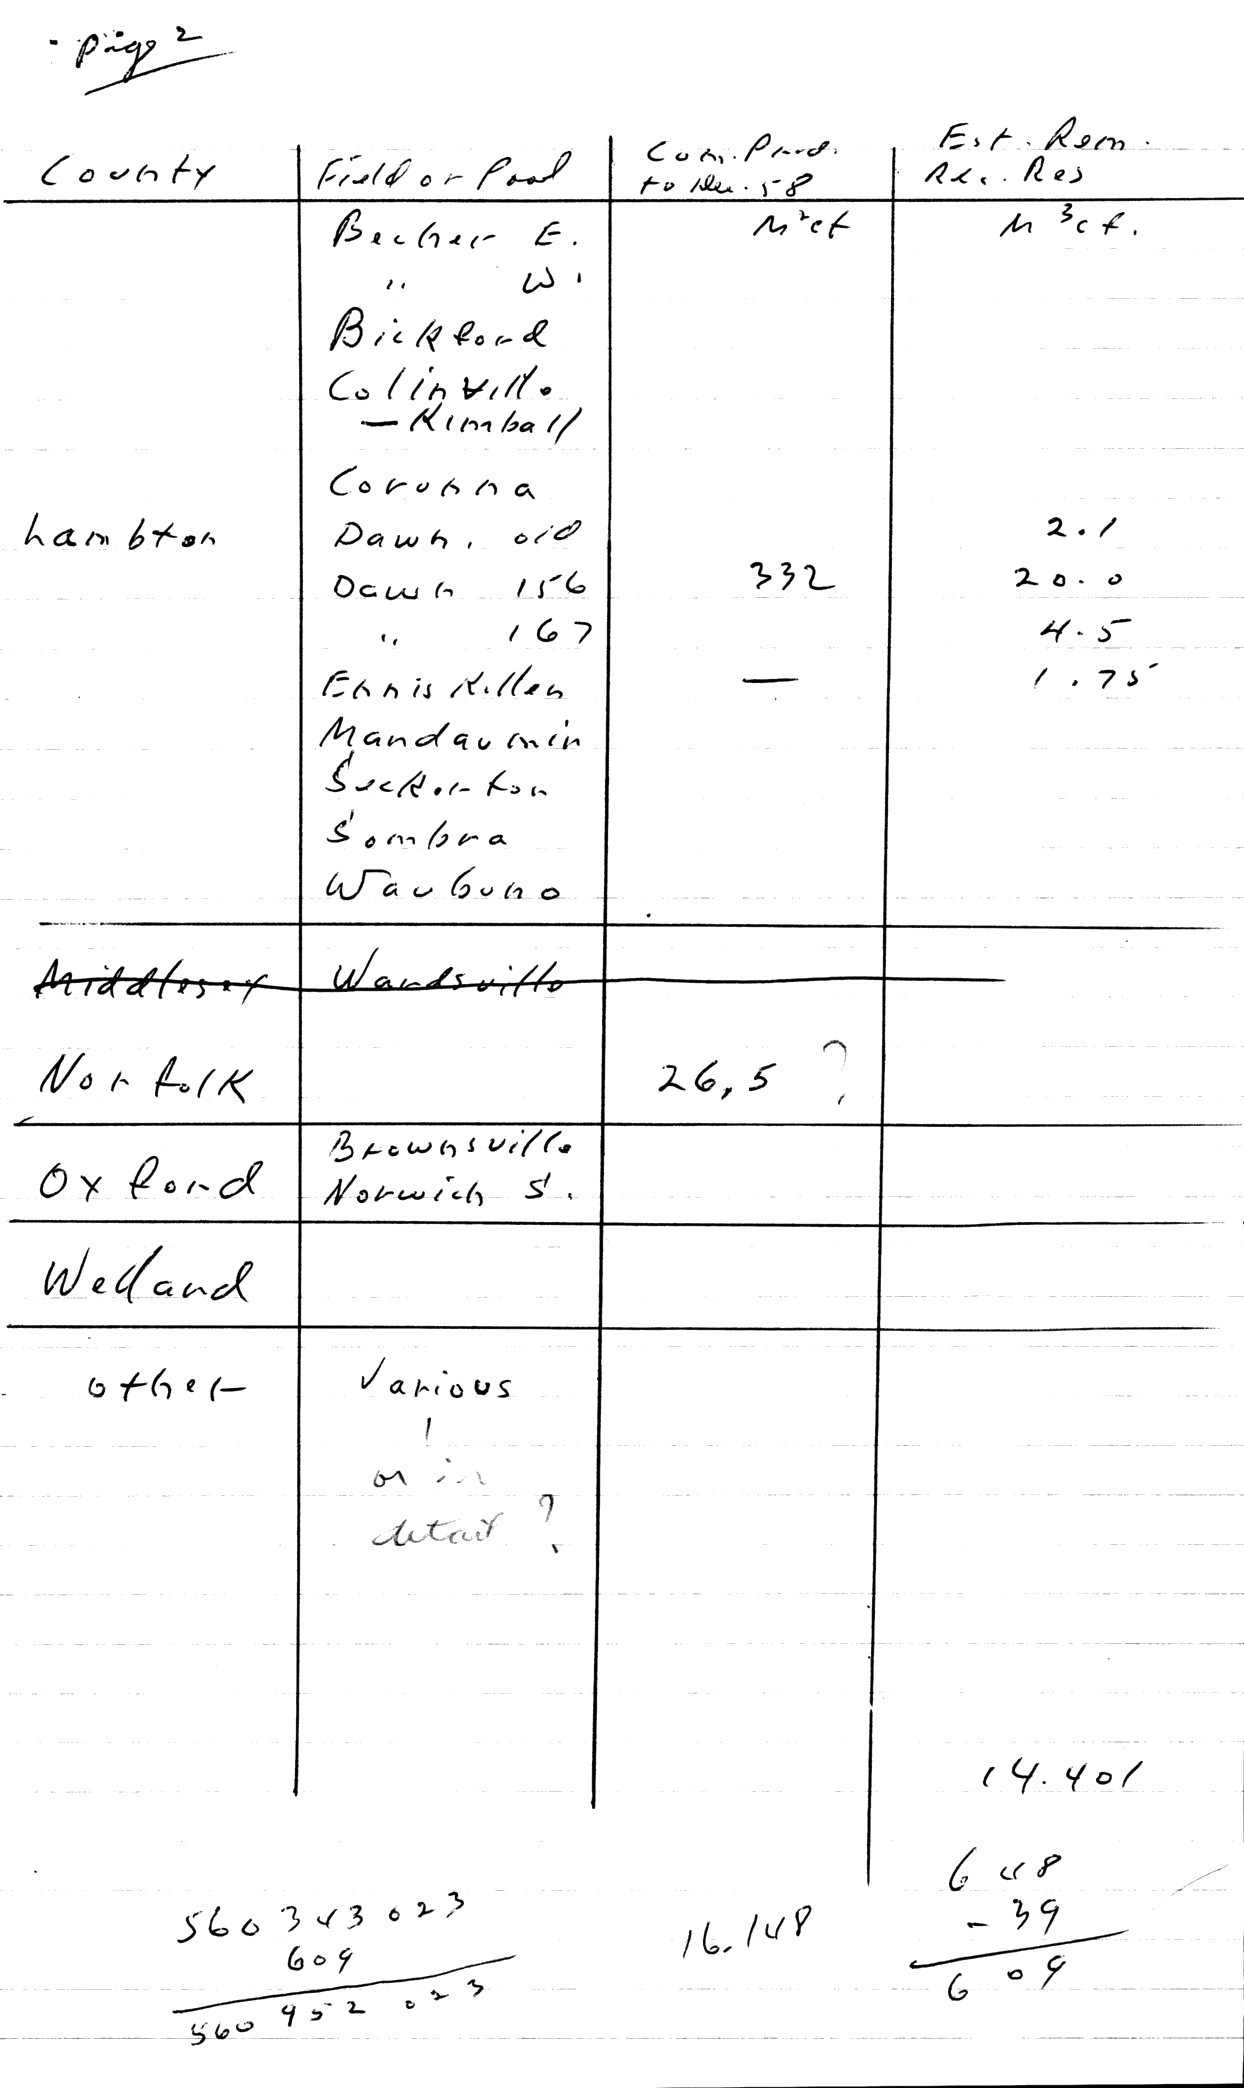 - page 2
County Field or Pool Cum. Prod. to Dec. 58 Est. Rem. Rec. Res
Becher E. M²cf M³cf.
" W.
Bickford
Colinville
- Kimball
Corunna
Lambton Dawn, old 2.1
Dawn 156 332 20.0
" 167 4.5
Enniskillen — 1.75
Mandaumin
Seckerton
Sombra
Waubuno
Middlesex Wardsville
Norfolk 26,5 ?
Brownsville
Oxford Norwich S.
Welland
other Various
!
or in
detail ?
14.401
648
560 343 023 16.148 - 39
609 609
560 952 023